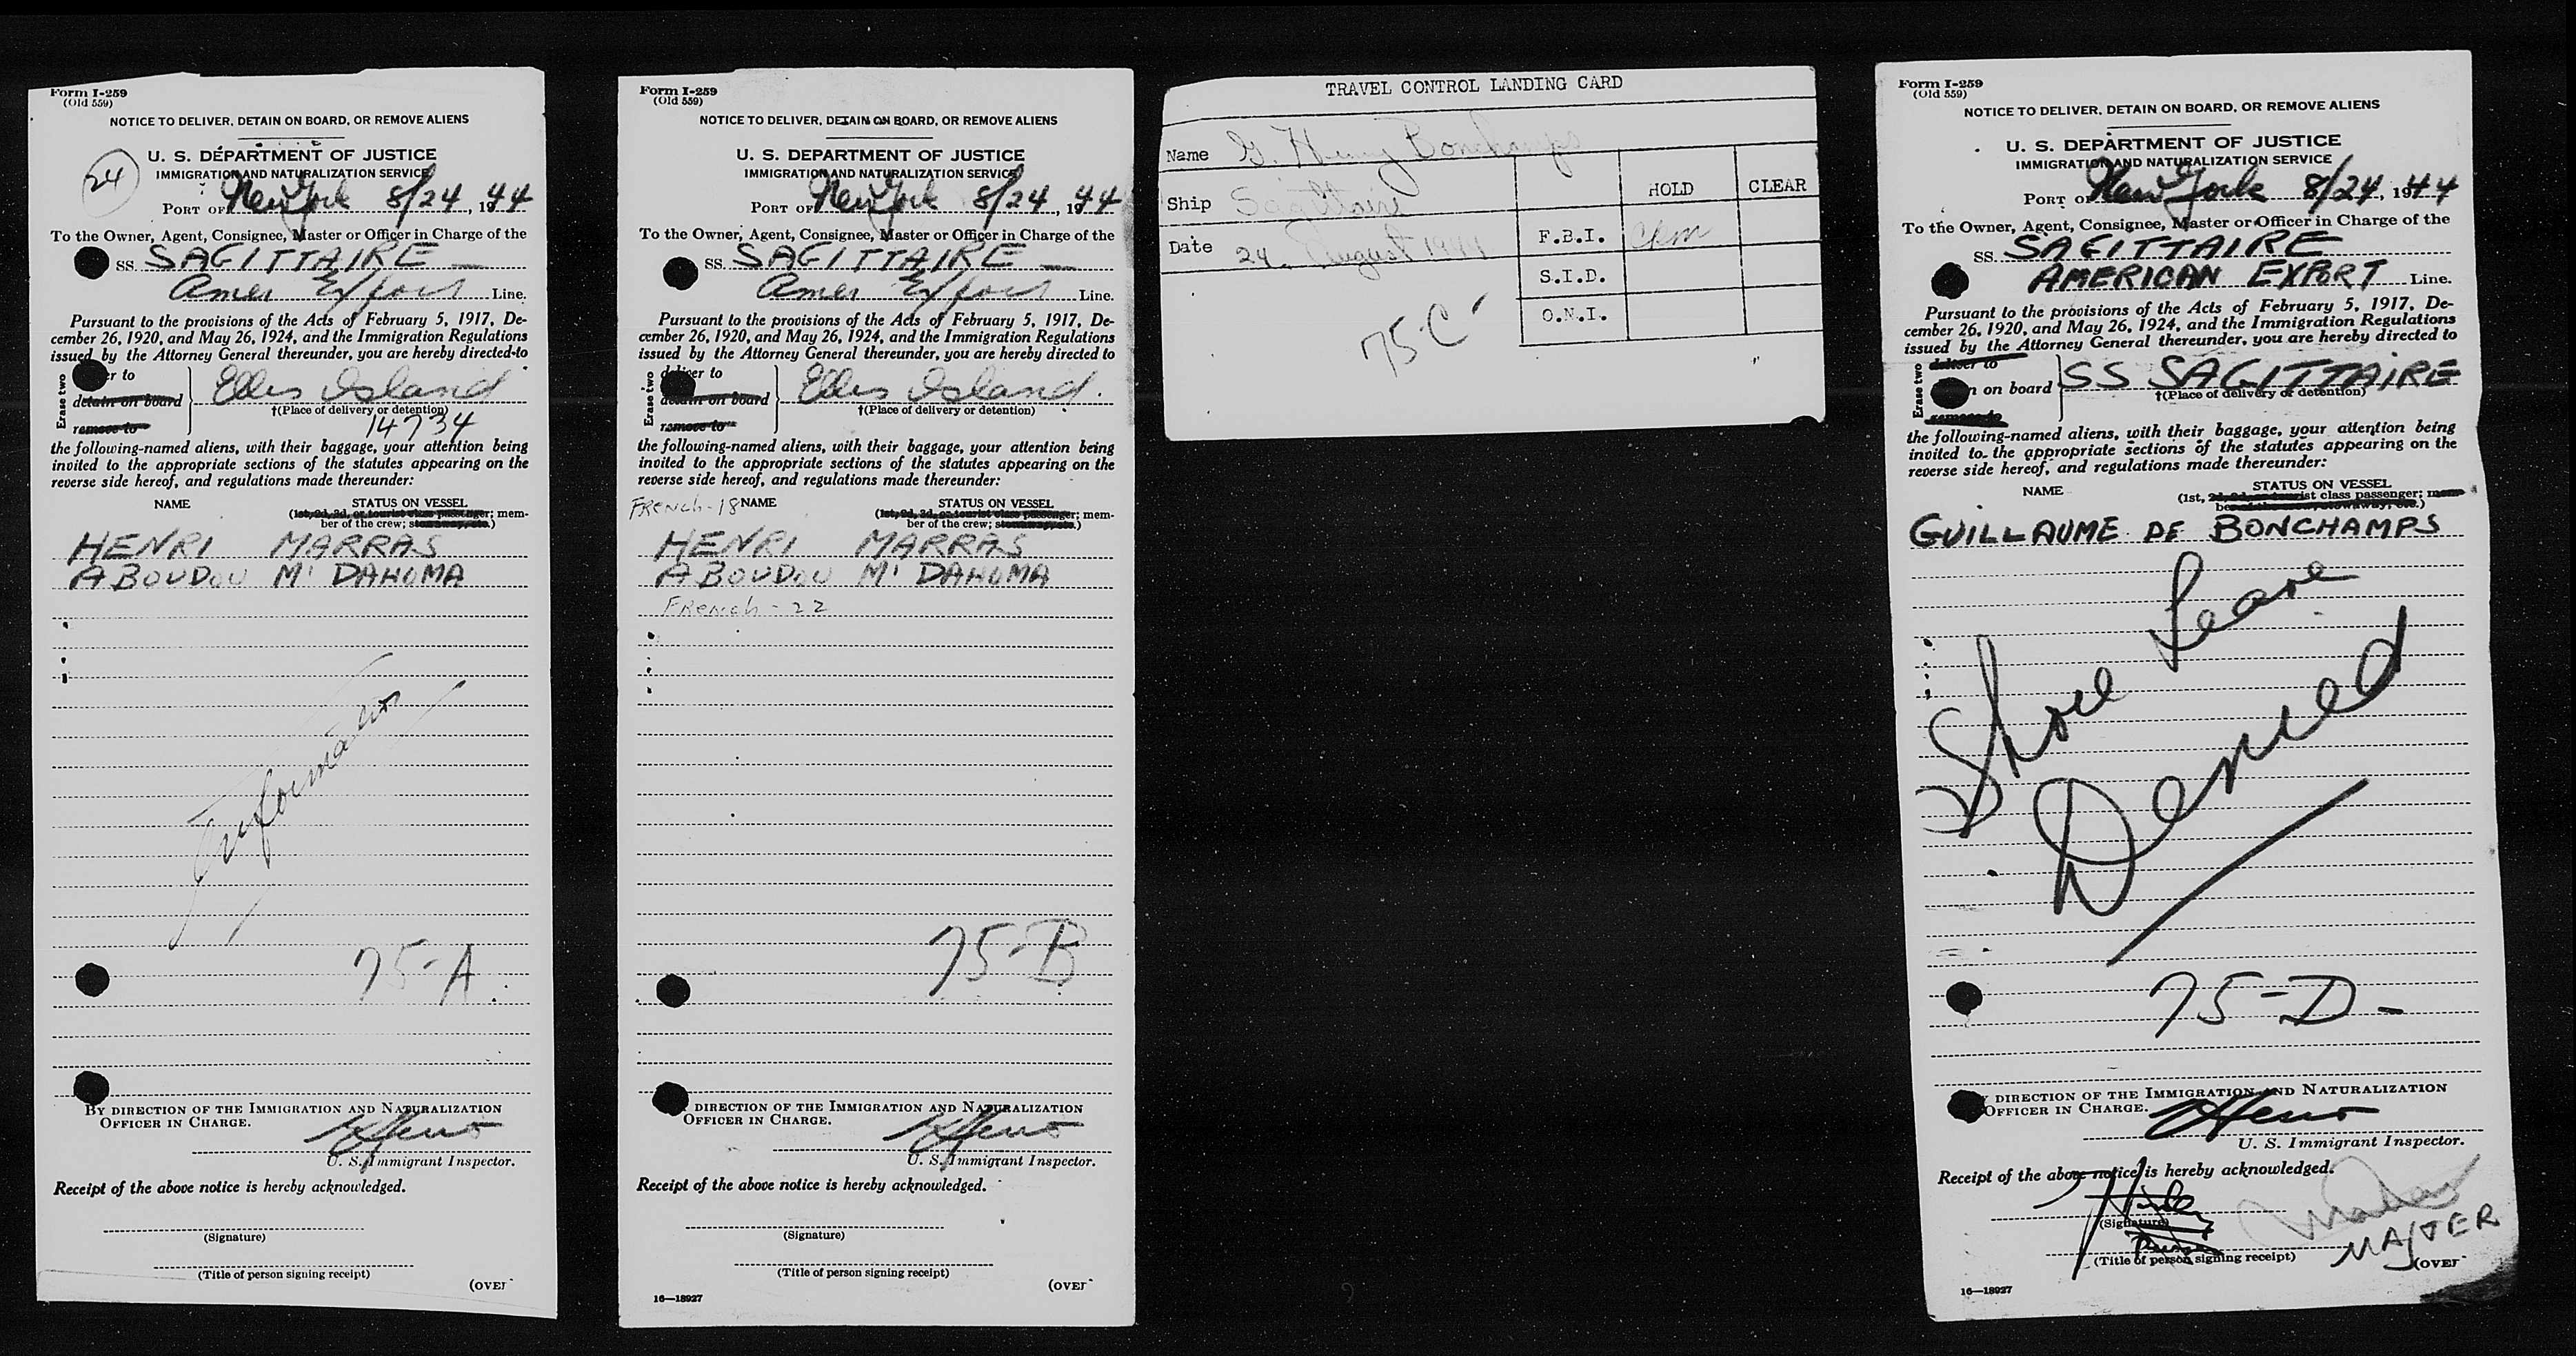 Form I-259
(Old 559)
NOTICE TO DELIVER, DETAIN ON BOARD, OR REMOVE ALIENS
24
U. S. DEPARTMENT OF JUSTICE
IMMIGRATION AND NATURALIZATION SERVICE
PORT OF New York 8/24, 1944
To the Owner, Agent, Consignee, Master or Officer in Charge of the
SS. SAGITTAIRE
Amer Export Line.
Pursuant to the provisions of the Acts of February 5, 1917, De-
cember 26, 1920, and May 26, 1924, and the Immigration Regulations
issued by the Attorney General thereunder, you are hereby directed to
Erase two
er to
detain on board
remove to
Ellis Island
†(Place of delivery or detention)
14734
the following-named aliens, with their baggage, your attention being
invited to the appropriate sections of the statutes appearing on the
reverse side hereof, and regulations made thereunder:
NAME STATUS ON VESSEL
(1st, 2d, 3d, or tourist class passenger; mem-
ber of the crew; stowaway, etc.)
HENRI MARRAS
ABOUDOU M' DAHOMA
Information
75-A
BY DIRECTION OF THE IMMIGRATION AND NATURALIZATION
OFFICER IN CHARGE.
U. S. Immigrant Inspector.
Receipt of the above notice is hereby acknowledged.
(Signature)
(Title of person signing receipt)
(OVER
Form I-259
(Old 559)
NOTICE TO DELIVER, DETAIN ON BOARD, OR REMOVE ALIENS
U. S. DEPARTMENT OF JUSTICE
IMMIGRATION AND NATURALIZATION SERVICE
PORT OF New York 8/24, 1944
To the Owner, Agent, Consignee, Master or Officer in Charge of the
SS. SAGITTAIRE
Amer Export Line.
Pursuant to the provisions of the Acts of February 5, 1917, De-
cember 26, 1920, and May 26, 1924, and the Immigration Regulations
issued by the Attorney General thereunder, you are hereby directed to
Erase two
deliver to
detain on board
remove to
Ellis Island.
†(Place of delivery or detention)
the following-named aliens, with their baggage, your attention being
invited to the appropriate sections of the statutes appearing on the
reverse side hereof, and regulations made thereunder:
FRENCH-18 NAME STATUS ON VESSEL
(1st, 2d, 3d, or tourist class passenger; mem-
ber of the crew; stowaway, etc.)
HENRI MARRAS
ABOUDOU M' DAHOMA
FRENCH-22
75-B
DIRECTION OF THE IMMIGRATION AND NATURALIZATION
OFFICER IN CHARGE.
U. S. Immigrant Inspector.
Receipt of the above notice is hereby acknowledged.
(Signature)
(Title of person signing receipt)
(OVER
16—18927
TRAVEL CONTROL LANDING CARD
Name G. Henry Bonchamps
Ship Sagittaire
Date 24 August 1944
HOLD CLEAR
F.B.I.
S.I.D.
O.N.I.
75-C
Form I-259
(Old 559)
NOTICE TO DELIVER, DETAIN ON BOARD, OR REMOVE ALIENS
U. S. DEPARTMENT OF JUSTICE
IMMIGRATION AND NATURALIZATION SERVICE
PORT OF New York 8/24, 1944
To the Owner, Agent, Consignee, Master or Officer in Charge of the
SS. SAGITTAIRE
AMERICAN EXPORT Line.
Pursuant to the provisions of the Acts of February 5, 1917, De-
cember 26, 1920, and May 26, 1924, and the Immigration Regulations
issued by the Attorney General thereunder, you are hereby directed to
Erase two
deliver to
n on board
remove to
SS SAGITTAIRE
†(Place of delivery or detention)
the following-named aliens, with their baggage, your attention being
invited to the appropriate sections of the statutes appearing on the
reverse side hereof, and regulations made thereunder:
NAME STATUS ON VESSEL
(1st, 2d, 3d, or tourist class passenger; mem-
ber of the crew; stowaway, etc.)
GUILLAUME DE BONCHAMPS
Shore Leave
Denied
75-D-
DIRECTION OF THE IMMIGRATION AND NATURALIZATION
OFFICER IN CHARGE.
U. S. Immigrant Inspector.
Receipt of the above notice is hereby acknowledged.
(Signature)
MASTER
(Title of person signing receipt)
(OVER
16—18927